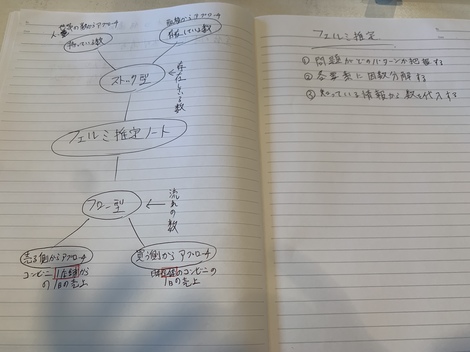 持っている数
存在している数
ストック型
フェルミ推定ノート
フロー型
流れの数
売る側からアプローチ
買う側からアプローチ
コンビニ1店舗
の1日の売上
のコンビニの
1日の売上
フェルミ推定
① 問題がどのパターンか把握する
② 各要素に因数分解する
③ 知っている情報から数を代入する